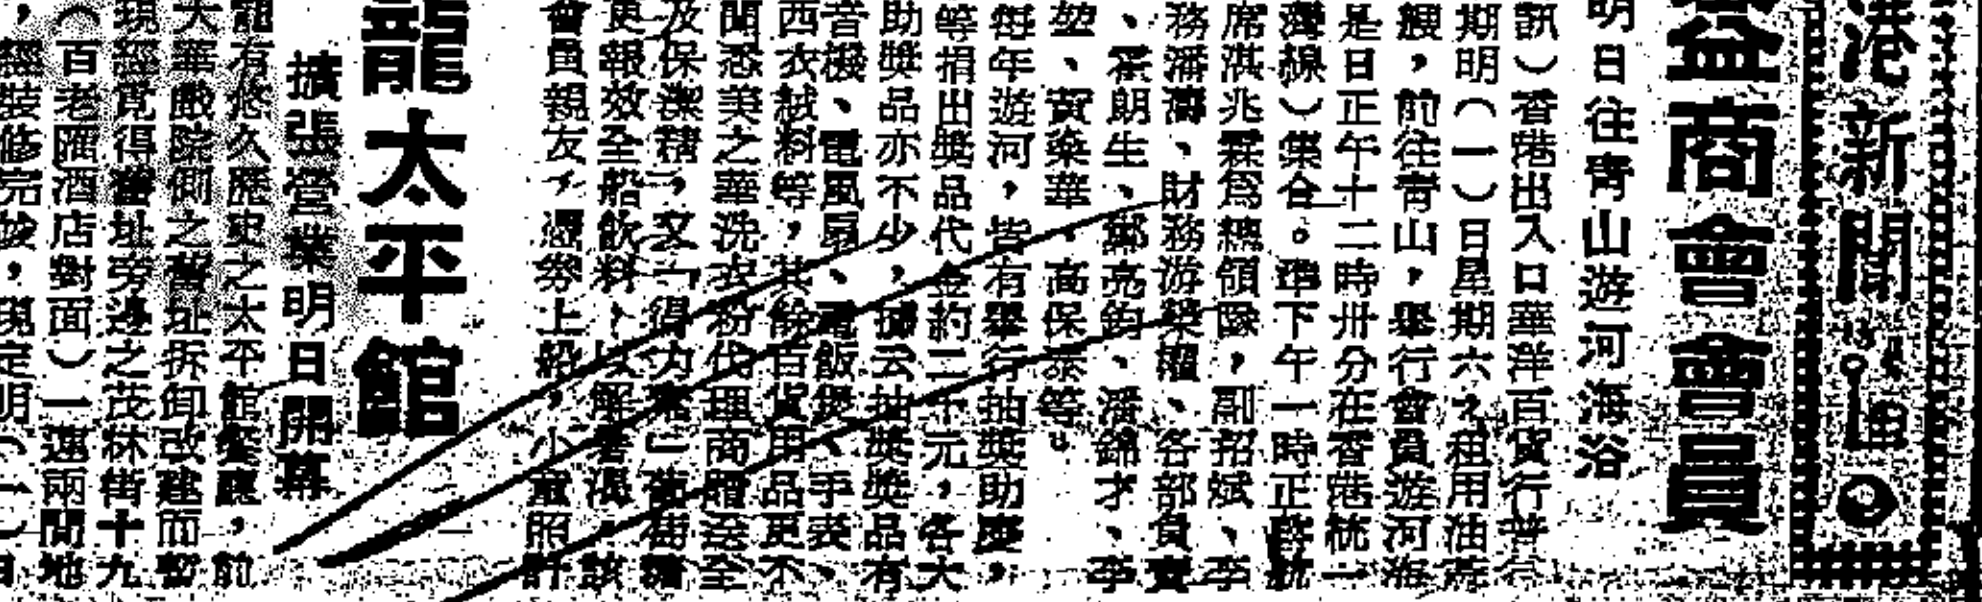 港新聞
益商會會員
明日往青山遊河海浴
訊）香港出入口華洋百貨行普
期明（一）日星期六，租用油蔴
艘，前往青山，舉行會員遊河海
是日正午十二時卅分在香港統一
灣線）集合。準下午一時正啓航
席淇兆霖爲總領隊，副招斌、李
務潘濤、財務游榮權、各部負責
、霍朗生、鄺亮鈞、潘錦才、李
堃、黃燊華、高保泰等。
每年遊河，皆有舉行抽獎助慶，
等捐出獎品代金約二千元，各大
助獎品亦不少，據云抽獎獎品有
音機、電風扇、電飯煲、手表、
西衣絨料等，其餘百貨用品更不
聞悉美之華洗衣粉代理商贈送全
及保潔精，又「得力素」葡萄糖
更報效全船飲料，以解暑渴。該
會員親友，憑券上船，小童照計
龍太平館
擴張營業明日開幕
龍有悠久歷史之太平館餐廳，前
大華戲院側之舊址拆卸改建而暫
現經覓得舊址旁邊之茂林街十九
（百老匯酒店對面）一連兩間地
，經裝修完竣，現定明（一）日